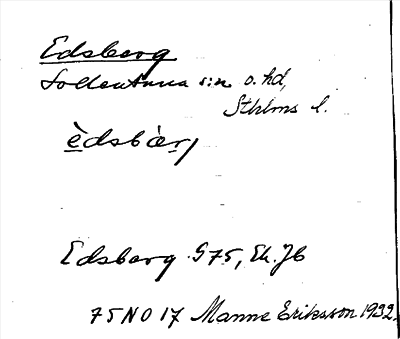 Edsberg
Sollentuna s:n o. hd,
Sthlms l.
èdsbær̹j
Edsberg G75, Ek. Jb
75 NO 17 Manne Eriksson 1932.